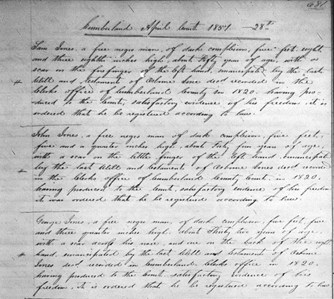 Cumberland April Court 1851 - 28th
Sam Jones, a free negro man, of dark complexion, five feet, eight
and three eighths inches high, about Fifty years of age, with a
scar on the forefinger of the left hand, emancipated by the last
Will and testament of Archer Jones decd recorded in the
Clerks office of Cumberland County in 1820, having pro-
duced to the Court, satisfactory evidence of his freedom it is
ordered that he be registered according to law.
John Jones, a free negro man of dark complexion, five feet,
five and a quarter inches high, about Fifty five years of age,
with a scar on the little finger of the left hand emancipated
by the last Will and testament of Archer Jones decd recorded
in the Clerks office of Cumberland County Court, in 1820,
having produced to the Court, satisfactory evidence of his freedom
it was ordered that he be registered according to law.
George Jones, a free negro man of dark complexion, five feet, five
and three quarter inches high, about Thirty two years of age,
with a scar across his nose, and one on the back of the right
hand, emancipated by the last Will and testament of Archer
Jones decd recorded in Cumberland Clerks office in 1820,
having produced to the Court, satisfactory evidence of his
freedom, it is ordered that he be registered according to law